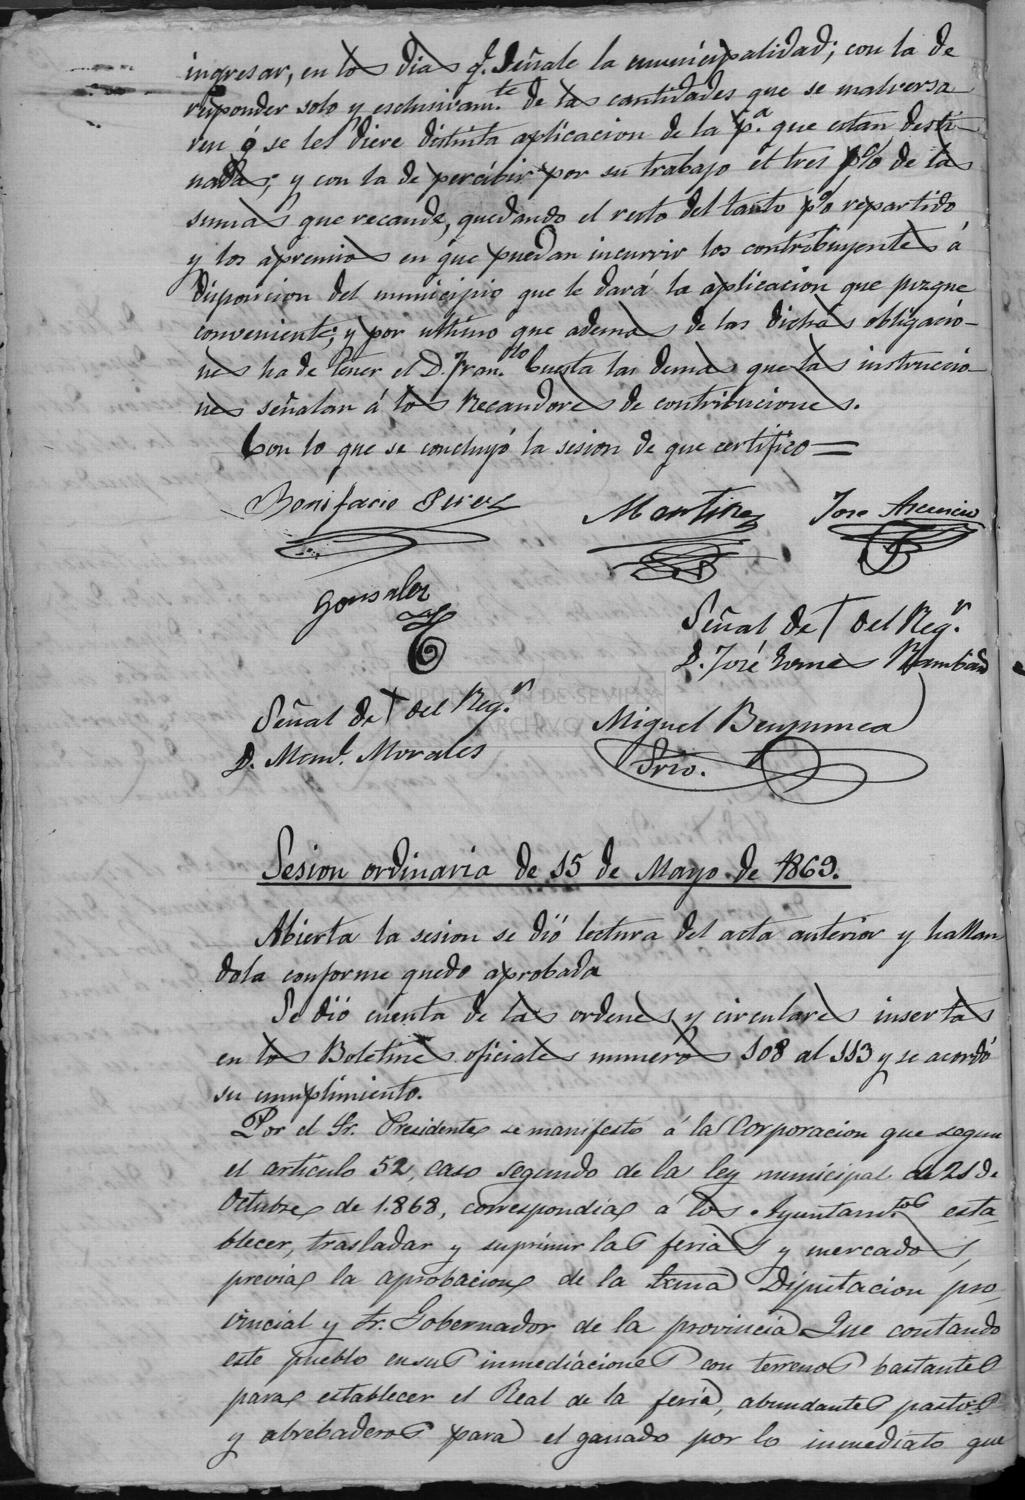 ingresar, en los dias q.e señale la municipalidad; con la de
responder solo y esclusivam.te de las cantidades que se malversa
ren ó se les diere distinta aplicacion de la p.a que estan desti
nadas; y con la de percibir por su trabajo el tres p%o de las
sumas que recaude, quedando el resto del tanto p%o repartido
y los apremios en que puedan incurrir los contribuyentes á
disposicion del municipio que le dará la aplicacion que juzgue
conveniente; y por ultimo que ademas de las dichas obligacio-
nes ha de tener el D. Fran.co Cuesta las demas que las instruccio
nes señalan á los Recaudores de contribuciones.
Con lo que se concluyó la sesion de que certifico=
Bonifacio Perez
Martinez
Jose Asencio
Gonsalez
Señal de † del Reg.r
D. José Gomes
Señal de † del Reg.r
D. Man.l Morales
DIPUTACION DE SEVILLA
ARCHIVO
Miguel Benjumea
Srio.
Sesion ordinaria de 15 de Mayo de 1869.
Abierta la sesion se dió lectura del acta anterior y hallan
dola conforme quedo aprobada
Se dió cuenta de las ordenes y circulares insertas
en los Boletines oficiales numeros 108 al 113 y se acordó
su cumplimiento.
Por el Sr. Presidente se manifestó á la Corporacion que segun
el artículo 52, caso segundo de la ley municipal de 21 de
Octubre de 1.868, correspondia á los Ayuntam.tos esta-
blecer, trasladar y suprimir las ferias y mercados,
previa la aprobacion de la Exma Diputacion pro-
vincial y Sr. Gobernador de la provincia. Que contando
este pueblo en sus inmediaciones con terrenos bastantes
para establecer el Real de la feria, abundantes pastos
y abrebaderos para el ganado por lo inmediato que